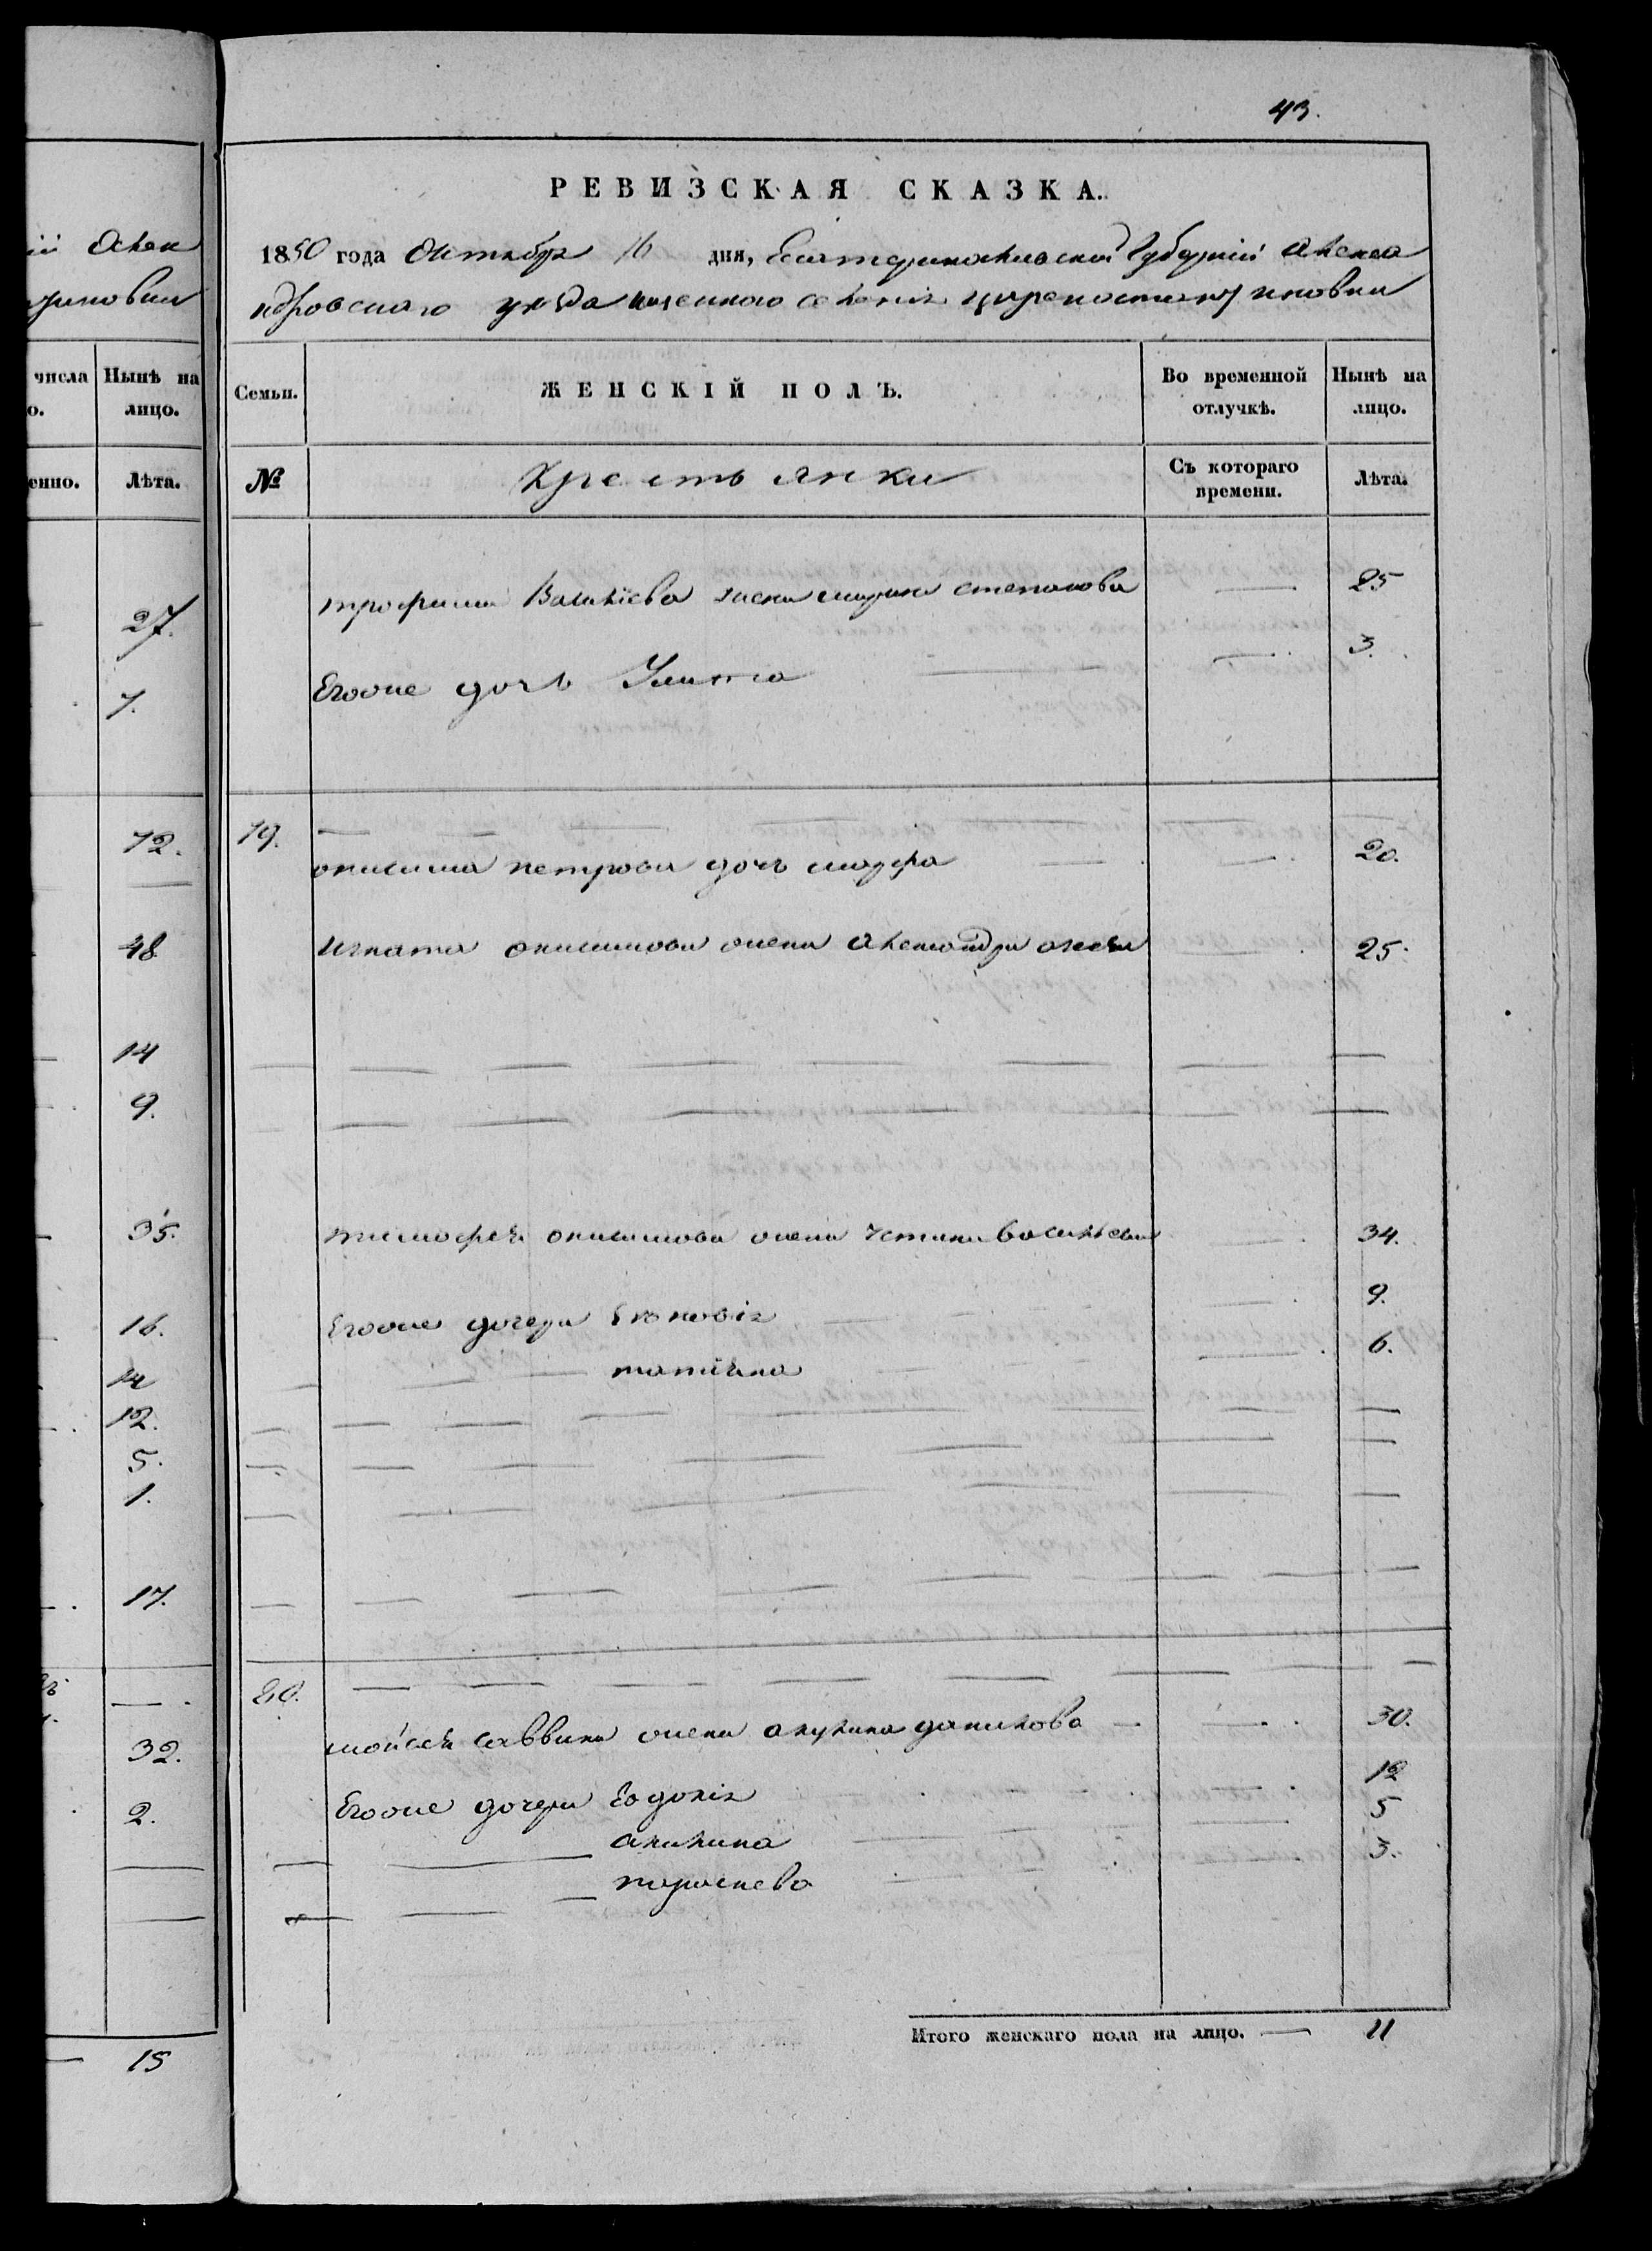 ій Алек
числа Нынѣ на
о. лицо.
енно. Лѣта.
27.
7.
72.
48
14
9.
35.
16.
14
12.
5.
1.
17.
32.
2.
15
43.
РЕВИЗСКАЯ СКАЗКА.
1850 года Октября 16 дня, Екатеринославской Губерній Алекса
ндровского уезда казенного селенія
Семьи. ЖЕНСКІЙ ПОЛЪ. Во временной отлучкѣ. Нынѣ на лицо.
№ Крестьянки Съ котораго времени. Лѣта.
трофима Васильева жена марина степанова — 25
Егоже дочь Улита — 3.
79.
онисима петрова дочь мавра — 20.
Игната онисимова жена Александра — 25.
тимофея онисимова жена Устина васильева — 34.
Егоже дочери Ксновія — 9.
татіяна — 6.
80.
мойсея саввина жена акулина данилова — 30.
Егоже дочери Евдокія — 12
акилина — 5
парасκева — 3.
Итого женскаго пола на лицо. — 11